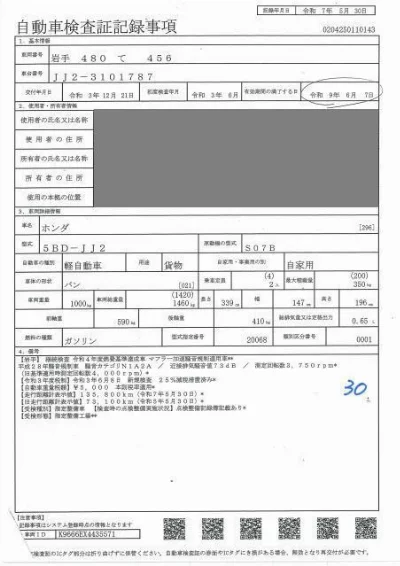 記録年月日 令和 7年 5月 30日
自動車検査証記録事項
0204250110143
1．基本情報
車両番号 岩手 480 て 456
車台番号 JJ2-3101787
交付年月日 令和 3年12月 21日 初度検査年月 令和 3年 6月 有効期間の満了する日 令和 9年 6月 7日
2．使用者・所有者情報
使用者の氏名又は名称
使用者の住所
所有者の氏名又は名称
所有者の住所
使用の本拠の位置
3．車両詳細情報
車名 ホンダ [296]
型式 5BD-JJ2 原動機の型式 S07B
自動車の種別 軽自動車 用途 貨物 自家用・事業用の別 自家用
車体の形状 バン [021] 乗車定員 (4) 2人 最大積載量 (200) 350kg
車両重量 1000kg 車両総重量 (1420) 1460kg 長さ 339cm 幅 147cm 高さ 196cm
前軸重 590kg 後軸重 410kg 総排気量又は定格出力 0.65L
燃料の種類 ガソリン 型式指定番号 20068 類別区分番号 0001
4．備考
[岩手] 継続検査 令和4年度燃費基準達成車 マフラー加速騒音規制適用車**
平成28年騒音規制車 騒音カテゴリN1A2A ／ 近接排気騒音値73dB ／ 測定回転数3，750rpm*
[令和3年度税制] 令和3年6月8日 新規検査 25%減税措置済み*
[自動車重量税額] ￥5，000 本則税率適用*
[走行距離計表示値] 135，800km (令和7年5月30日)*
[旧走行距離計表示値] 73，100km (令和5年6月5日)*
[受検種別] 指定整備車 [検査時の点検整備実施状況] 点検整備記録簿記載あり*
[受検形態] 指定整備工場**
30
[注意事項]
記録事項はシステム登録時点の情報となります
車両ID K9666EX4435571